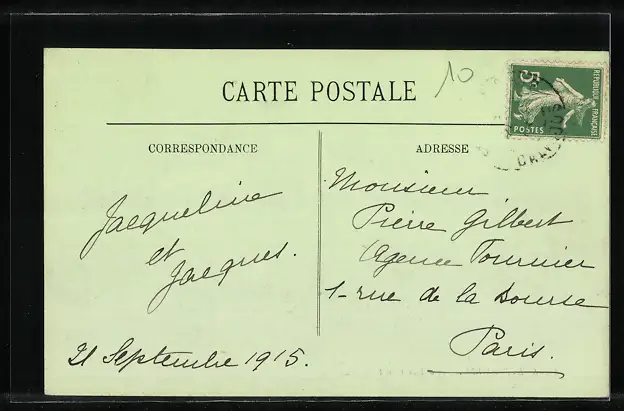 CARTE POSTALE
10
5c
REPUBLIQUE FRANÇAISE
POSTES
CORRESPONDANCE
ADRESSE
Jacqueline
et
Jacques.
21 Septembre 1915.
Monsieur
Pierre Gilbert
Agence Fournier
1- rue de la Bourse
Paris.